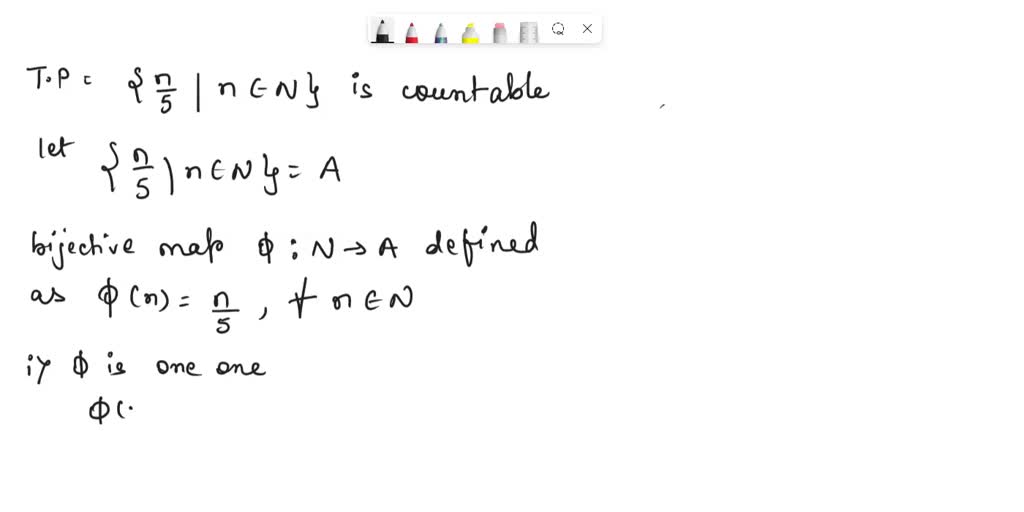 T.P = { n/5 | n ∈ N } is countable
let { n/5 | n ∈ N } = A
bijective map ϕ : N → A defined
as ϕ(n) = n/5 , ∀ n ∈ N
i) ϕ is one one
ϕ(.